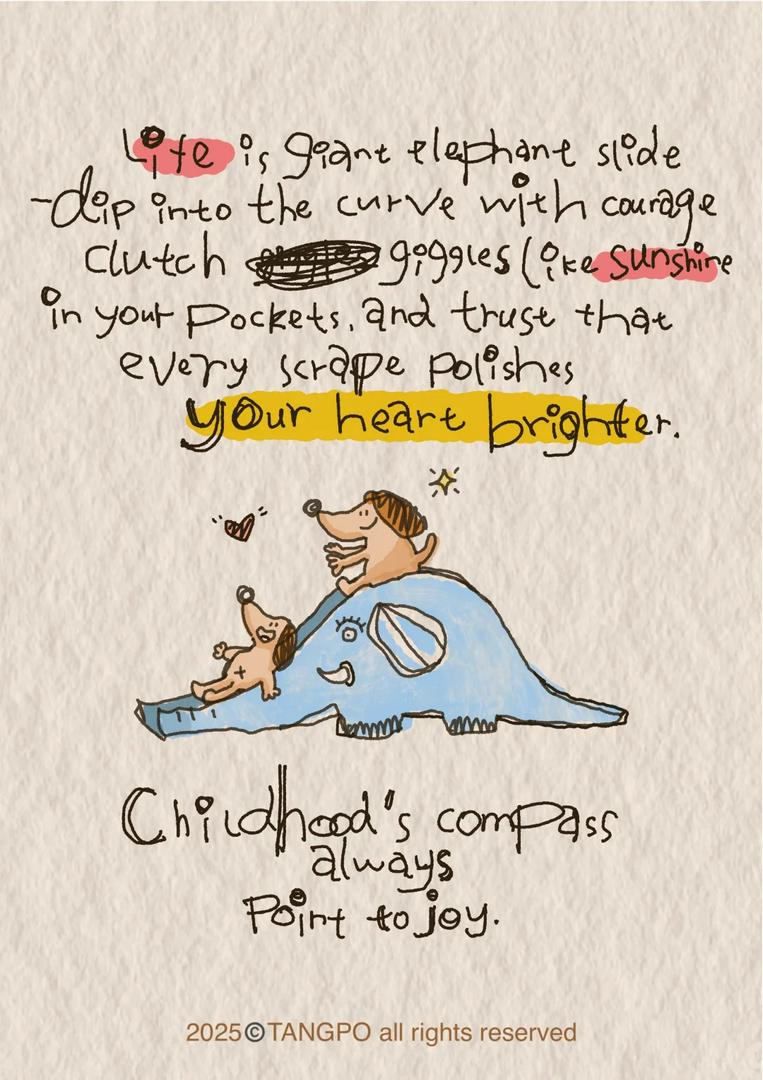 Life is giant elephant slide
-dip into the curve with courage
clutch giggles like sunshine
in your pockets, and trust that
every scrape polishes
your heart brighter.
Childhood's compass
always
Point to joy.
2025©TANGPO all rights reserved